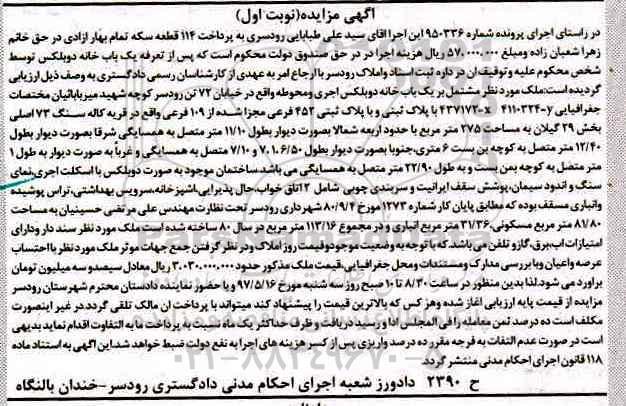 آگهی مزایده(نوبت اول)
در راستای اجرای پرونده شماره ۹۵۰۳۳۶ این اجرا آقای سید علی طبایابی رودسری به پرداخت ۱۱۴ قطعه سکه تمام بهار ازادی در حق خانم
زهرا شعبان زاده ومبلغ ۵۷۰,۰۰۰,۰۰۰ ریال هزینه اجرا در در حق صندوق دولت محکوم است که پس از تعرفه یک باب خانه دوبلکس توسط
شخص محکوم علیه و توقیف ان در داره ثبت اسناد واملاک رودسر با ارجاع امر به عهدی از کارشناسان رسمی دادگستری به وصف ذیل ارزیابی
گردیده است:ملک مورد نظر مشتمل بر یک باب خانه دوبلکس اجری ومحوطه واقع در خیابان ۷۲ تن رودسر کوچه شهید میرباباتیان مختصات
جغرافیایی ۴۱۱۰۳۲۴-y ۴۳۷۱۷۳-x با پلاک ثبتی و با پلاک ثبتی ۴۵۳ فرعی مجزا شده از ۱۰۹ فرعی واقع در قریه کاله سنگ ۷۳ اصلی
بخش ۲۹ گیلان به مساحت ۲۷۵ متر مربع با حدود اربعه شمالا بصورت دیوار بطول ۱۱/۱۰ متر متصل به همسایگی شرقا بصورت دیوار بطول
۱۲/۴۰ متر متصل به کوچه بن بست ۶ متری،جنوبا بصورت دیوار بطول ۶/۵۰،۷۰۱ و ۷/۱۰ متصل به همسایگی و غرباً به صورت دیوار به طول ۱
متر متصل به کوچه بمن بست و به طول ۲۲/۹۰ متر متصل به همسایگی می باشد.ساختمان موجود به صورت دوبلکس با اسکلت اجری،نمای
سنگ و اندود سیمان،پوشش سقف ایرانیت و سربندی چوبی شامل ۲ اتاق خواب،حال پذیرایی،اشپزخانه،سرویس بهداشتی،تراس پوشیده
وانباری مسقف بوده که مطابق پایان کار شماره ۱۲۷۳ مورخ ۸۰/۹/۴ شهرداری رودسر تحت نظارت مهندس علی مرتضی حسینیان به مساحت
۸۱/۸۰ متر مربع مسکونی،۳۱/۳۶ متر مربع انباری و در مجموع ۱۱۳/۱۶ متر مربع در سال ۸۰ ساخته شده است ملک مورد نظر سند دار ودارای
امتیازات اب،برق،گاز و تلفن می باشد.که با توجه به وضعیت موجود وقیمت روز املاک ودر نظر گرفتن جمع جهات موثر ملک مورد نظر با احتساب
عرصه واعیان وبا بررسی مدارک ومستندات ومحل جغرافیایی،قیمت ملک مذکور حدود ۳,۰۳۰,۰۰۰,۰۰۰ ریال معادل سیصدو سه میلیون تومان
براورد می شود.لذا بدین منظور در ساعت ۸/۳۰ تا ۱۰ صبح روز سه شنبه مورخ ۹۷/۵/۱۶ و با حضور نماینده دادستان محترم شهرستان رودسر
مزایده از قیمت پایه ارزیابی اغاز شده وهر کس که بالاترین قیمت را پیشنهاد کند میتواند با پرداخت ان مالک تلقی گردد.در غیر اینصورت
مکلف است ده درصد ثمن معامله را فی المجلس ادا و رسید دریافت و ظرف حداکثر یک ماه نسبت به پرداخت ما به التفاوت اقدام نماید.بدیهی
است در صورت عدم التفات به فرجه مقرر ده درصد واریزی پس از کسر هزینه های اجرا به نفع دولت ضبط خواهد شد.این آگهی به استناد ماده
۱۱۸ قانون اجرای احکام مدنی منتشر گردد.
ح ۲۳۹۰ دادورز شعبه اجرای احکام مدنی دادگستری رودسر-خندان بالنگاه
۰۲۱-۸۸۳۴۹۶۷۰